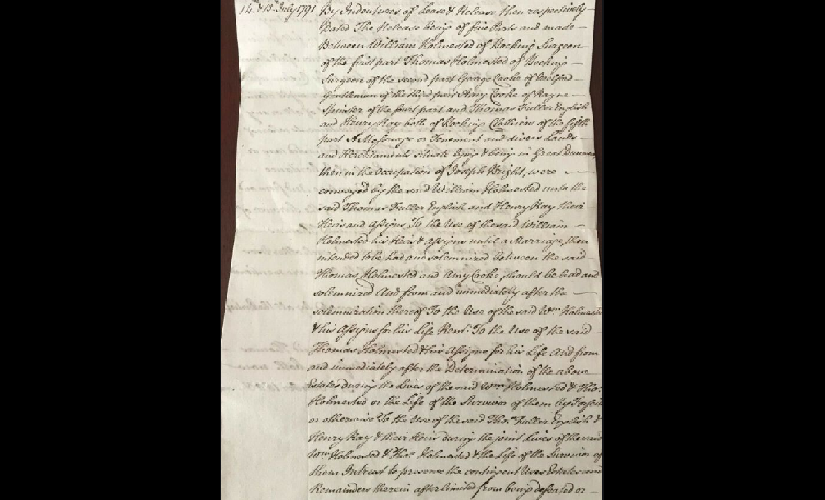 14th & 15th July 1791 By Indentures of Lease & Release then respectively
dated The Release being of five Parts and made
Between William Holmested of Bocking Surgeon
of the first part Thomas Holmested of Bocking
Surgeon of the second part George Cooke of
Gentleman of the third part Amy Cooke of Rayne
Spinster of the fourth part and Thomas Fuller English
and Henry Kay both of Bocking Clothiers of the fifth
part A Messuage or Tenement and divers Lands
and Hereditaments situate lying & being in Great
then in the Occupation of Joseph Wright, were
conveyed by the said William Holmested unto the
said Thomas Fuller English and Henry Kay their
Heirs and Assigns To the Use of the said William
Holmested his Heirs & Assigns until a Marriage then
intended to be had and solemnized between the said
Thomas Holmested and Amy Cooke should be had and
solemnized And from and immediately after the
solemnization thereof To the Use of the said Wm Holmested
& his Assigns for his Life Remr. To the Use of the said
Thomas Holmested & his Assigns for his Life And from
and immediately after the Determination of the above
Estates during the Lives of the said Wm Holmested & Thos
Holmested or the Life of the Survivor of them by
or otherwise To the Use of the said Thos Fuller English &
Henry Kay & their Heirs during the joint Lives of the said
Wm Holmested & Thos Holmested & the Life of the Survivor of
them In trust to preserve the contingent Uses Estates and
Remainders therein after limited from being defeated or